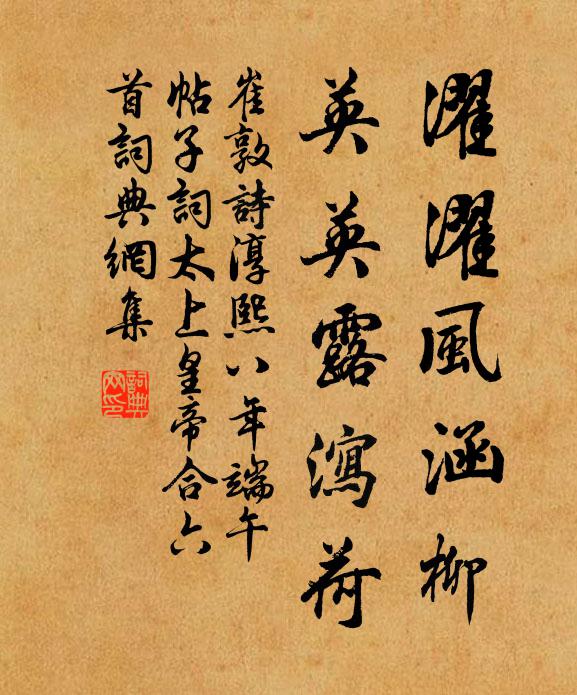 濯濯風涵柳
英英露瀉荷
崔敦詩淳熙八年端午
帖子詞太上皇帝合六
首詞典網集
詞典
网印